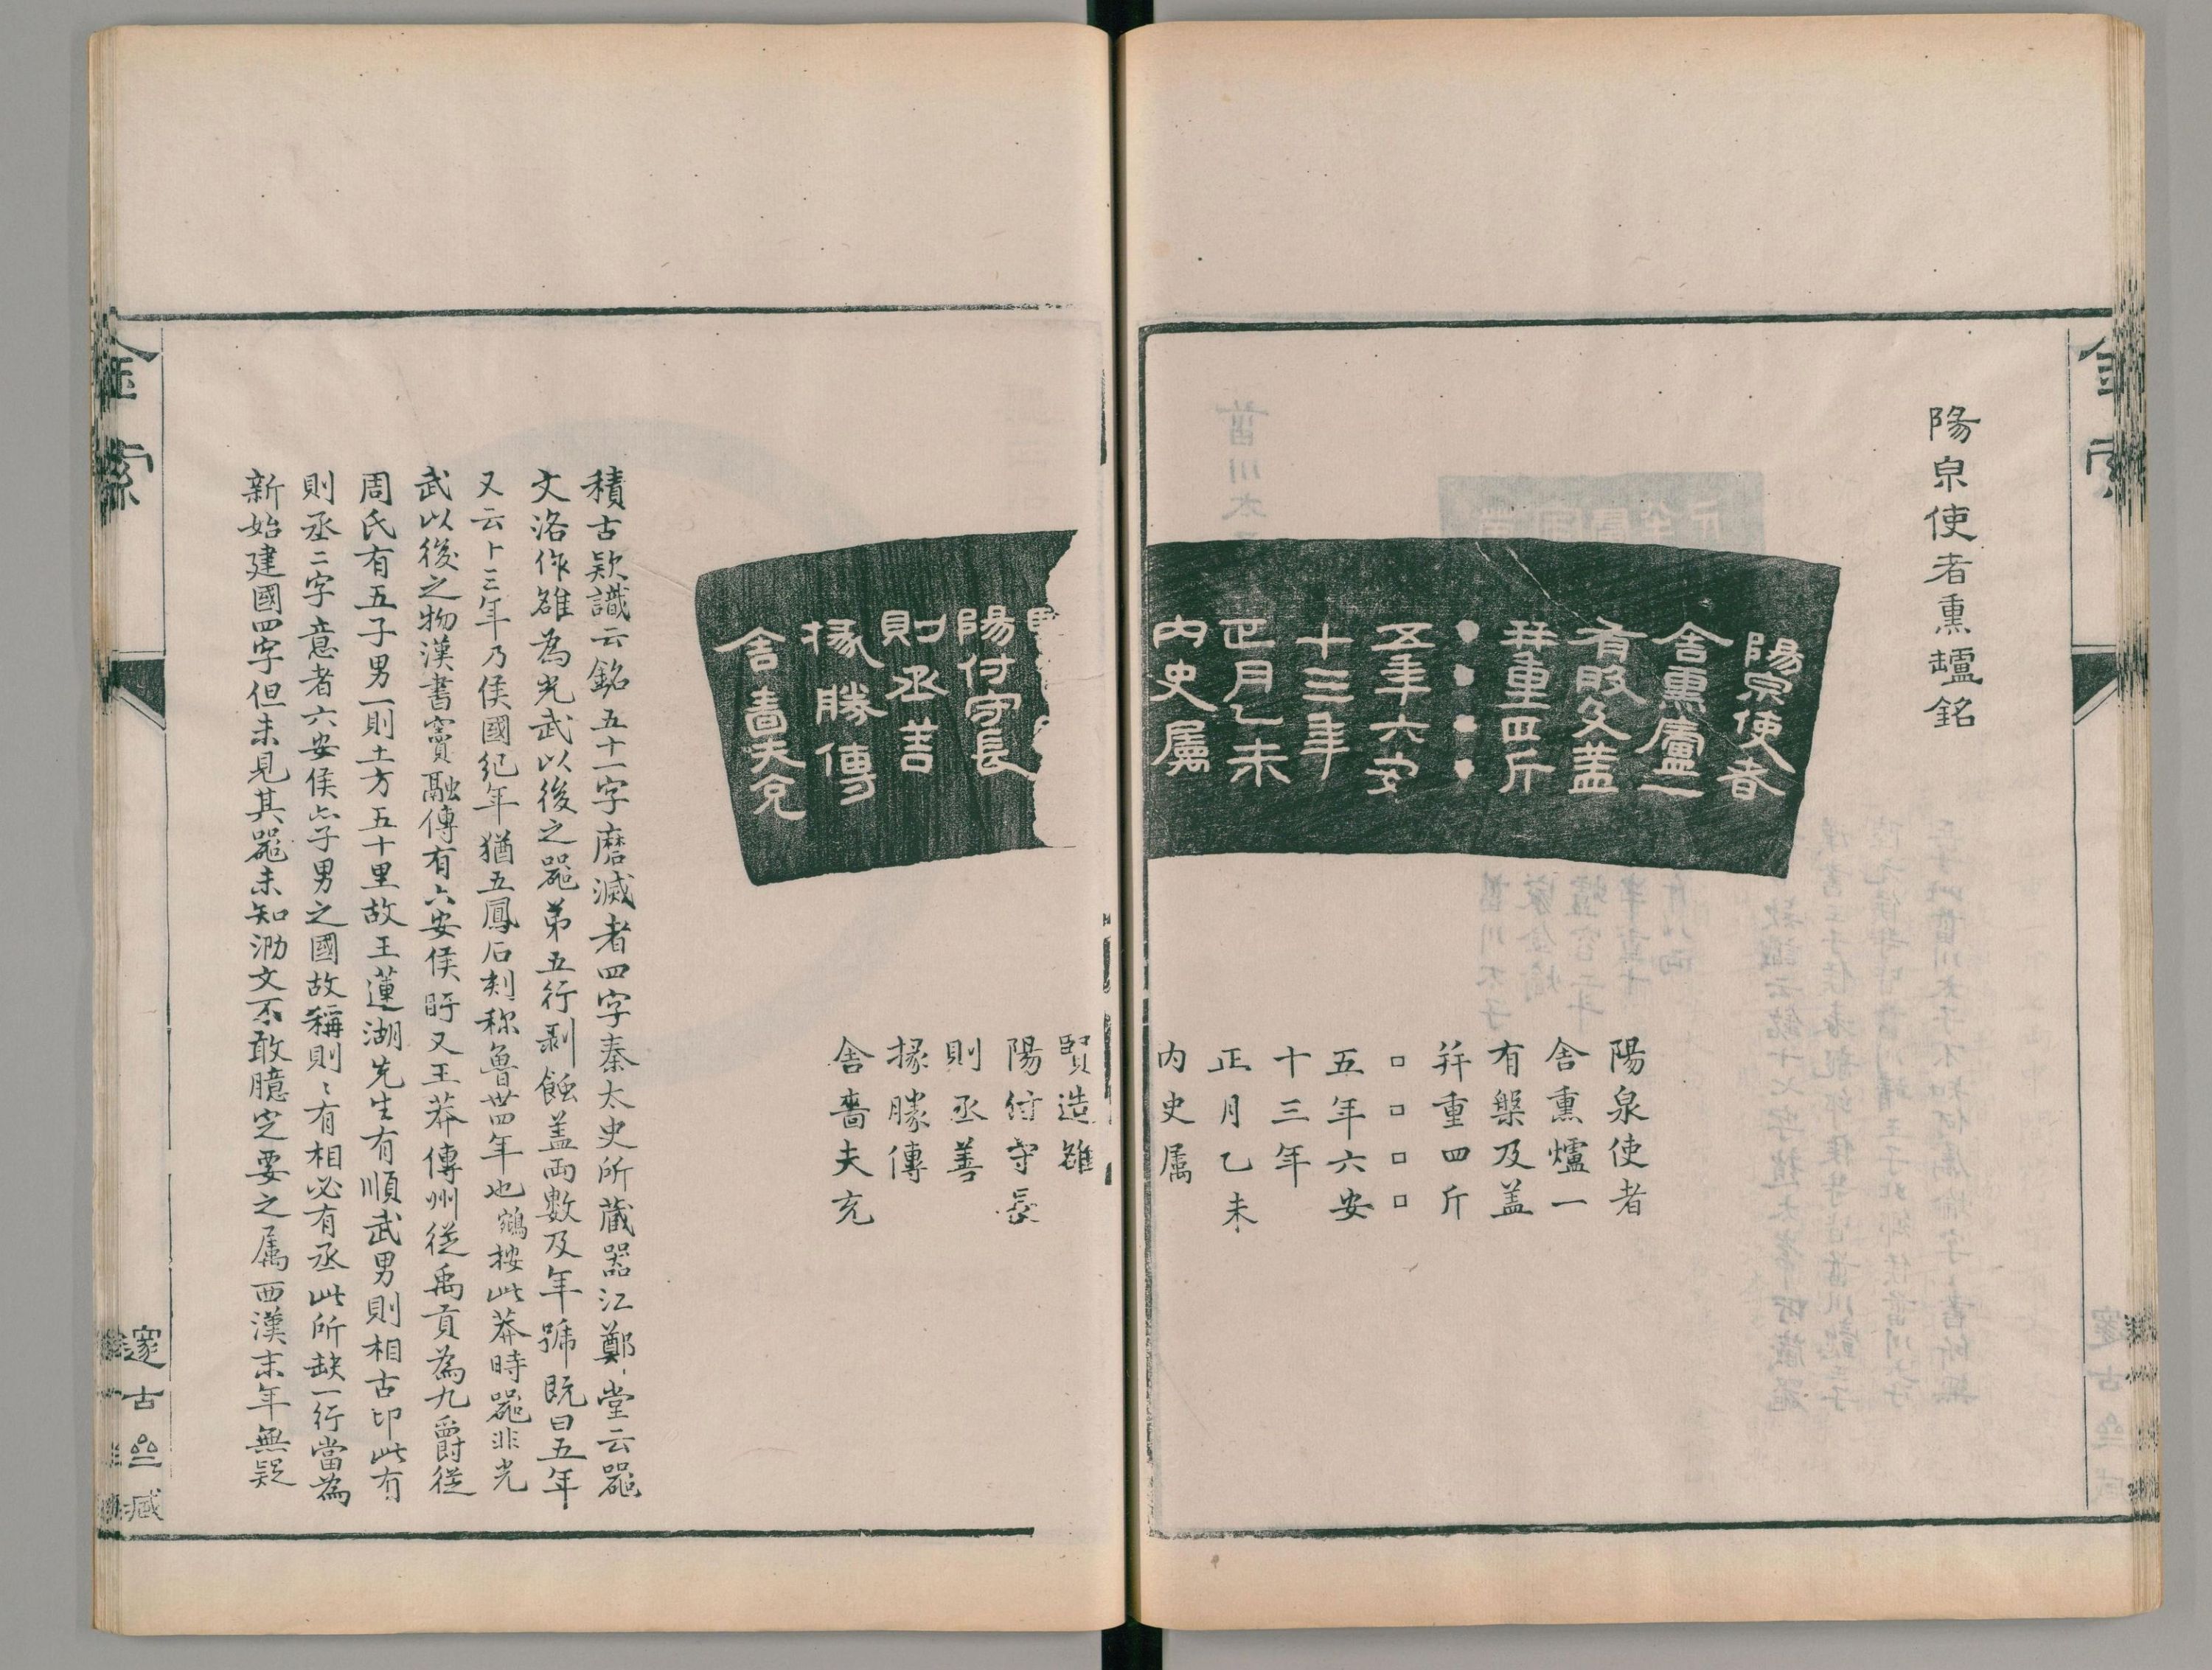 金索
陽泉使者熏爐銘
陽泉使者
舍熏廬一
有般及蓋
并重四斤
五年六安
十三年
正月乙未
內史屬
陽付守長
則丞善
掾勝傳
舍嗇夫兌
陽泉使者
舍熏爐一
有槃及盖
并重四斤
□□□□
五年六安
十三年
正月乙未
内史属
賢造雒
陽付守長
則丞善
掾勝傳
舍嗇夫兌
積古款識云銘五十一字磨滅者四字秦太史所藏器江鄭堂云器
文洛作雒為光武以後之器弟五行剥蝕盖兩數及年號既曰五年
又云十三年乃侯國紀年猶五鳳石刻称魯丗四年也鵷按此莽時器非光
武以後之物漢書竇融傳有六安侯盱又王莽傳州從禹貢為九爵從
周氏有五子男一則土方五十里故王蓮湖先生有順武男則相古印此有
則丞二字意者六安侯亦子男之國故稱則〻有相必有丞此所缺一行當為
新始建國四字但未見其器未知泐文不敢臆定要之属西漢末年無疑
金索
邃古亝臧